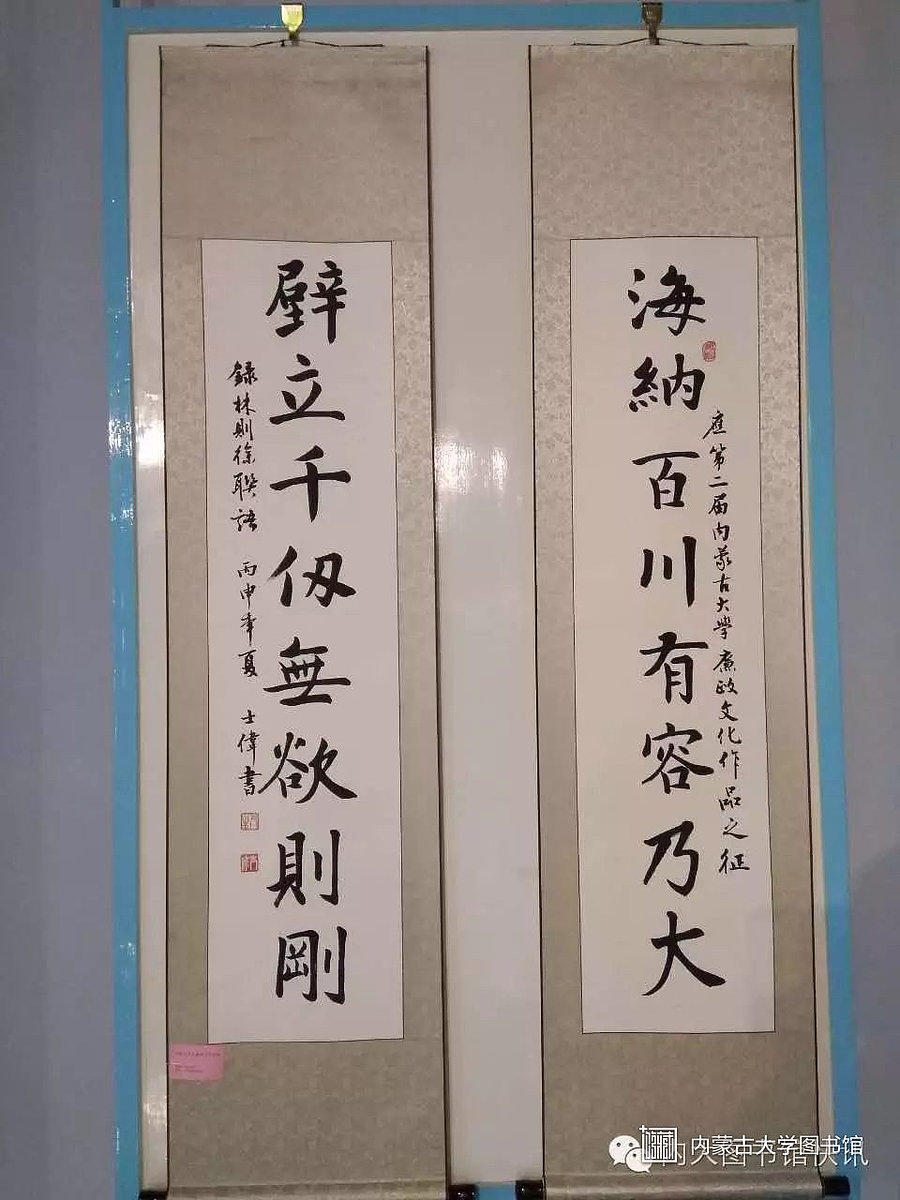 海納百川有容乃大
應第二届内蒙古大學廉政文化作品之征
壁立千仞無欲則剛
録林則徐聯語 丙申季夏 士偉書
内蒙古大学图书馆
内大图书馆快讯